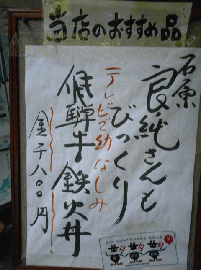 当店のおすすめ品
石原
良純さんも
びっくり
テレビで幼なじみ
飛騨牛鉄火丼
金千八〇〇円